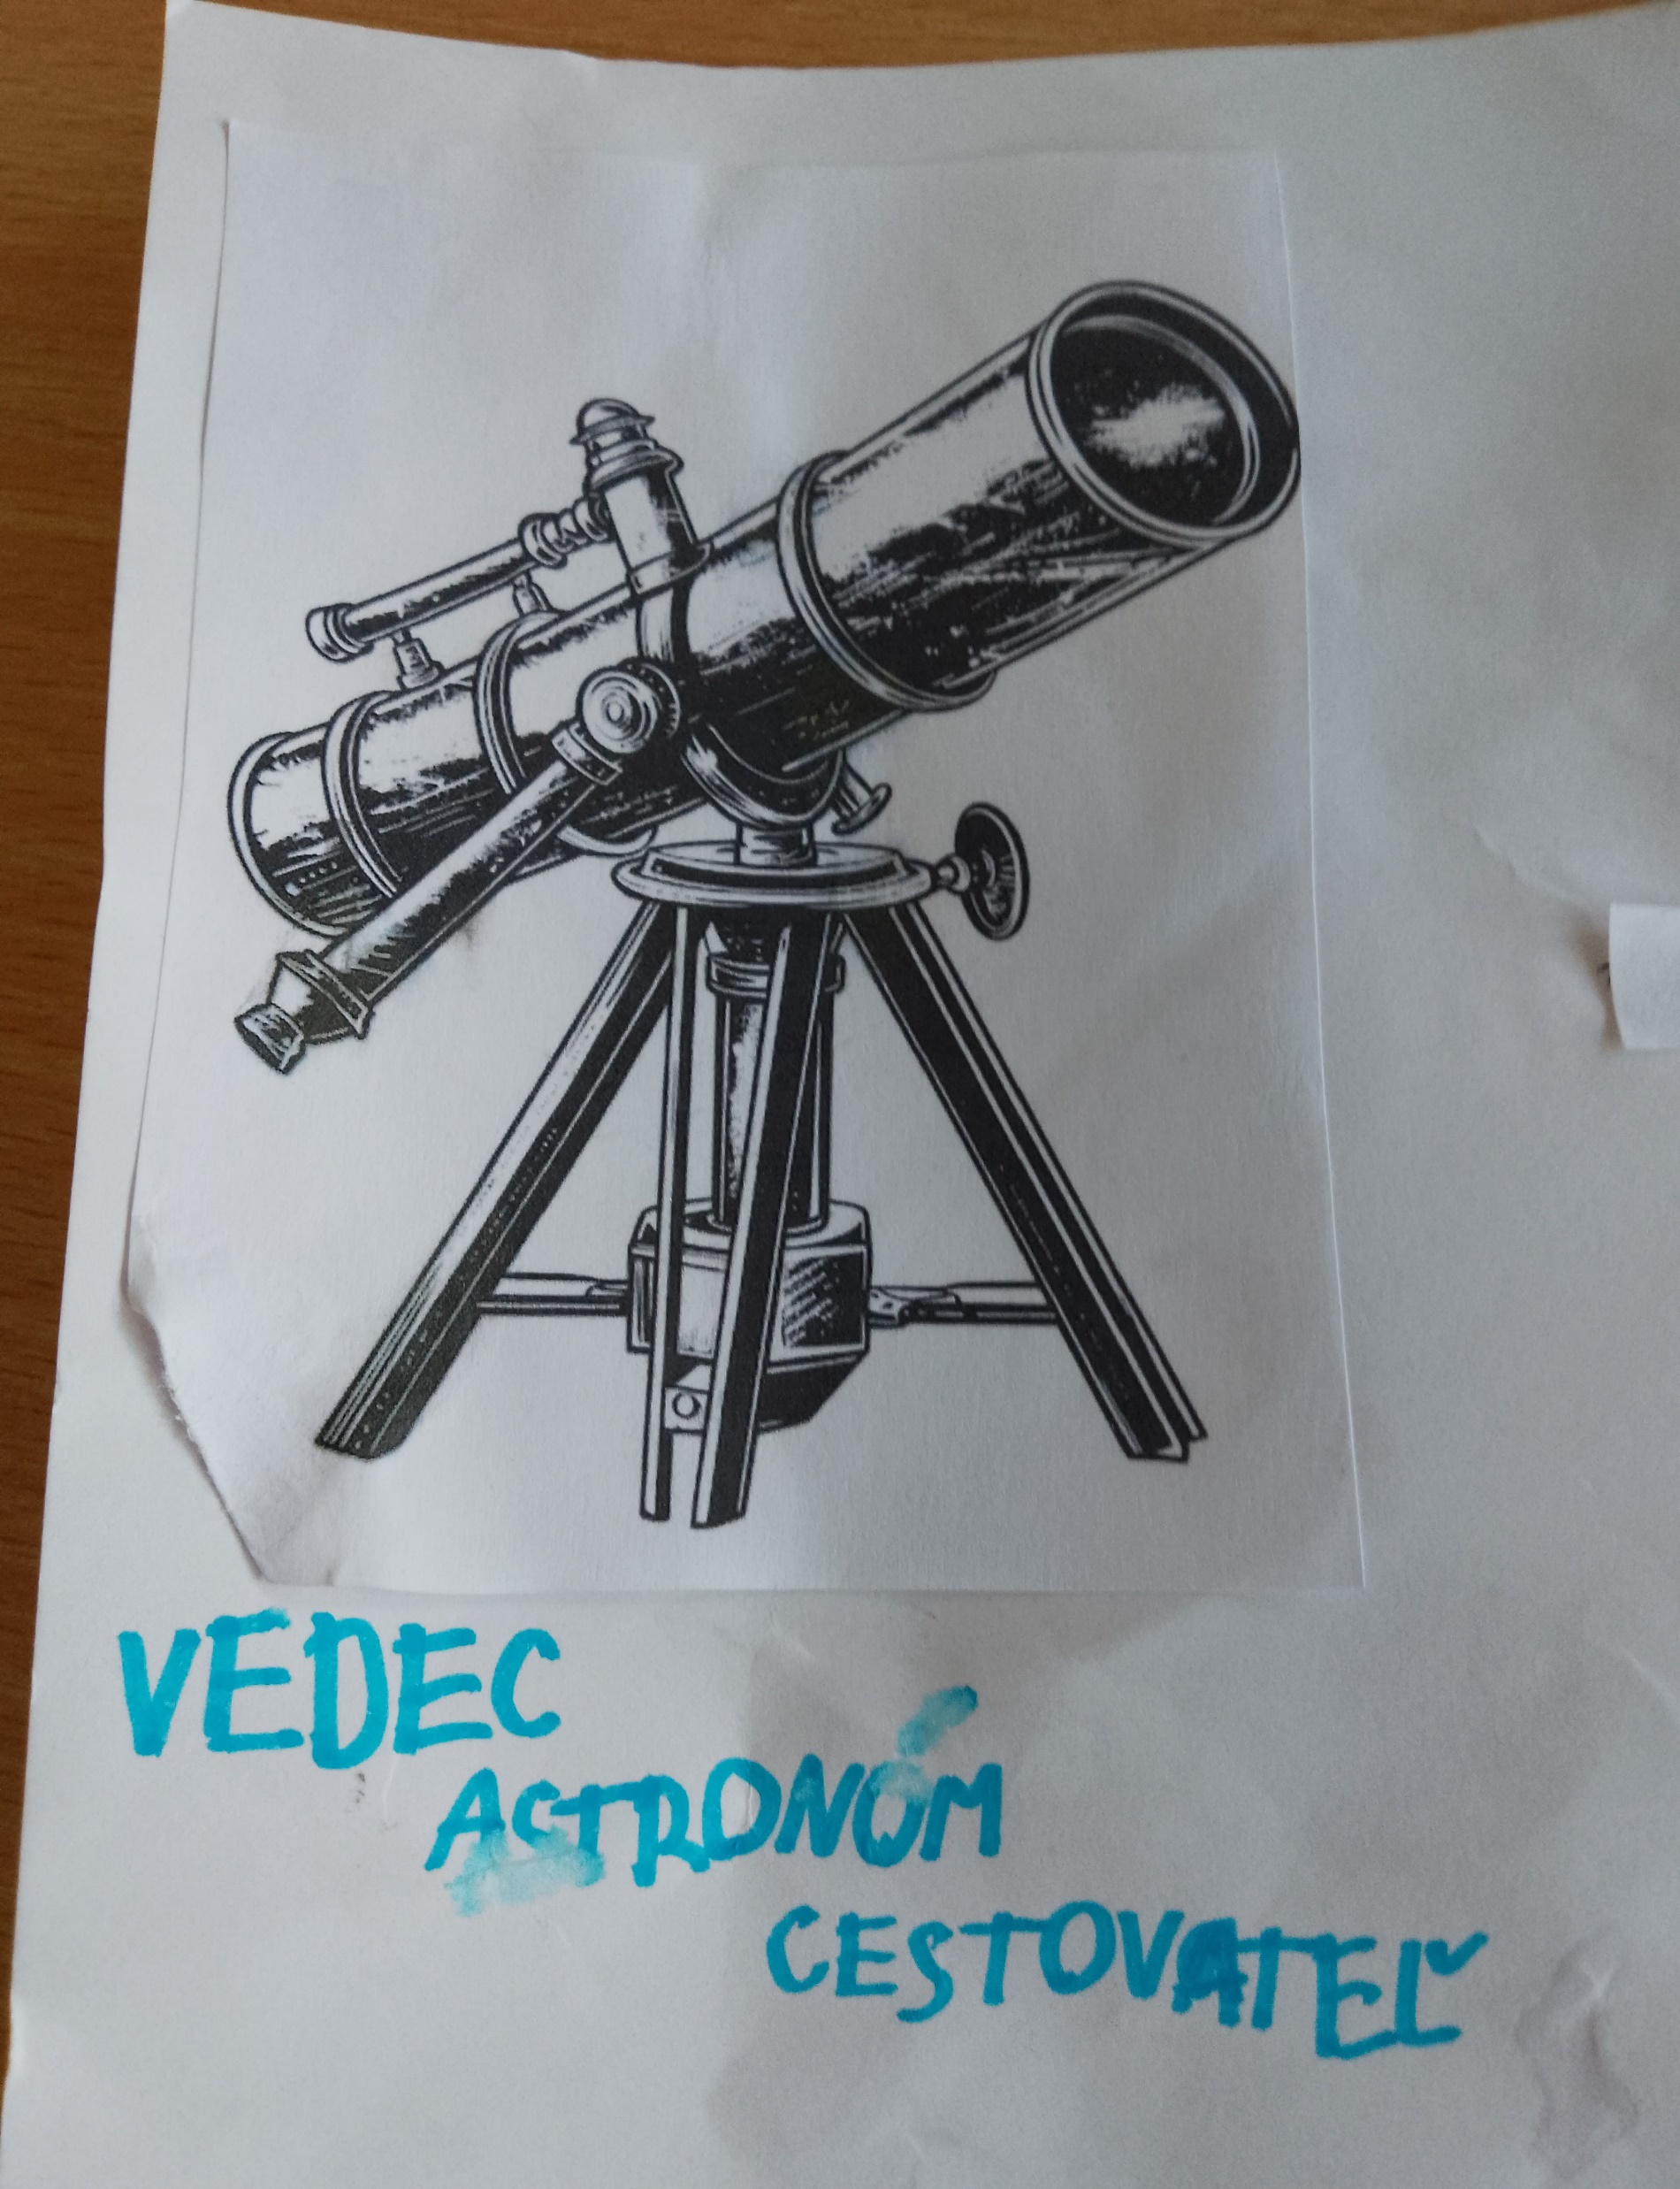 VEDEC
ASTRONÓM
CESTOVATEĽ